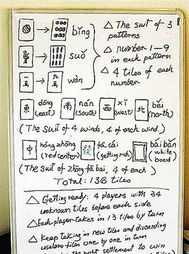 bǐng
suǒ
wàn
△ The suit of 3 patterns
△ number 1-9 in each pattern
△ 4 tiles of each number
dōng (east) nán (south) xī (west) běi (north)
(The suit of 4 winds, 4 of each wind.)
hóng zhōng (red center) fā cái (getting rich) bái bǎn (white board)
(The suit of zhōng fā bái, 4 of each)
Total: 136 tiles
△ Getting ready: 4 players with 34 unknown tiles before each side
each player takes in 13 tiles by turn
△ Keep taking in new tiles and discarding useless tiles one by one in turn
settlement to win